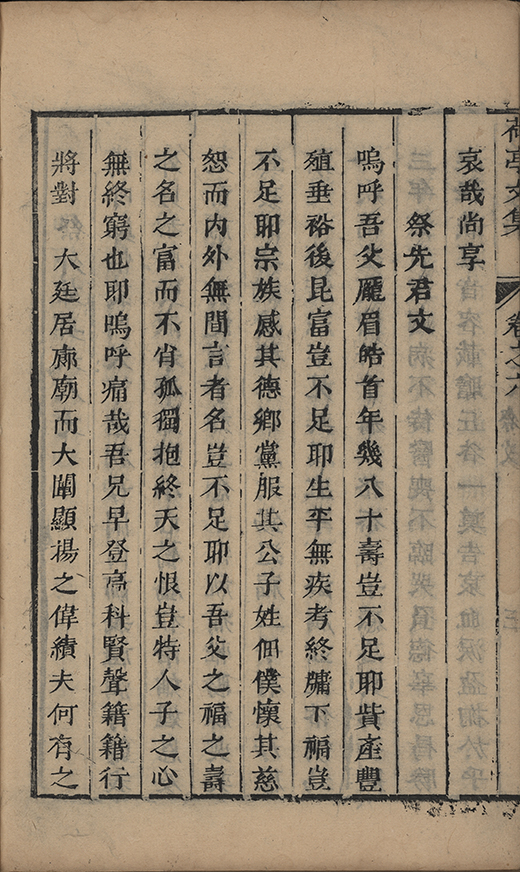 荷亭文集 卷之六
哀哉尚享
祭先君文
嗚呼吾父厖眉皓首年幾八十壽豈不足耶貲產豐
殖垂裕後昆富豈不足耶生平無疾考終牖下福豈
不足耶宗族感其德鄉黨服其公子姓佃僕懷其慈
恕而內外無間言者名豈不足耶以吾父之福之壽
之名之富而不肖孤獨抱終天之恨豈特人子之心
無終窮也耶嗚呼痛哉吾兄早登高科賢聲籍籍行
將對 大廷居廊廟而大闡顯揚之偉績夫何有之